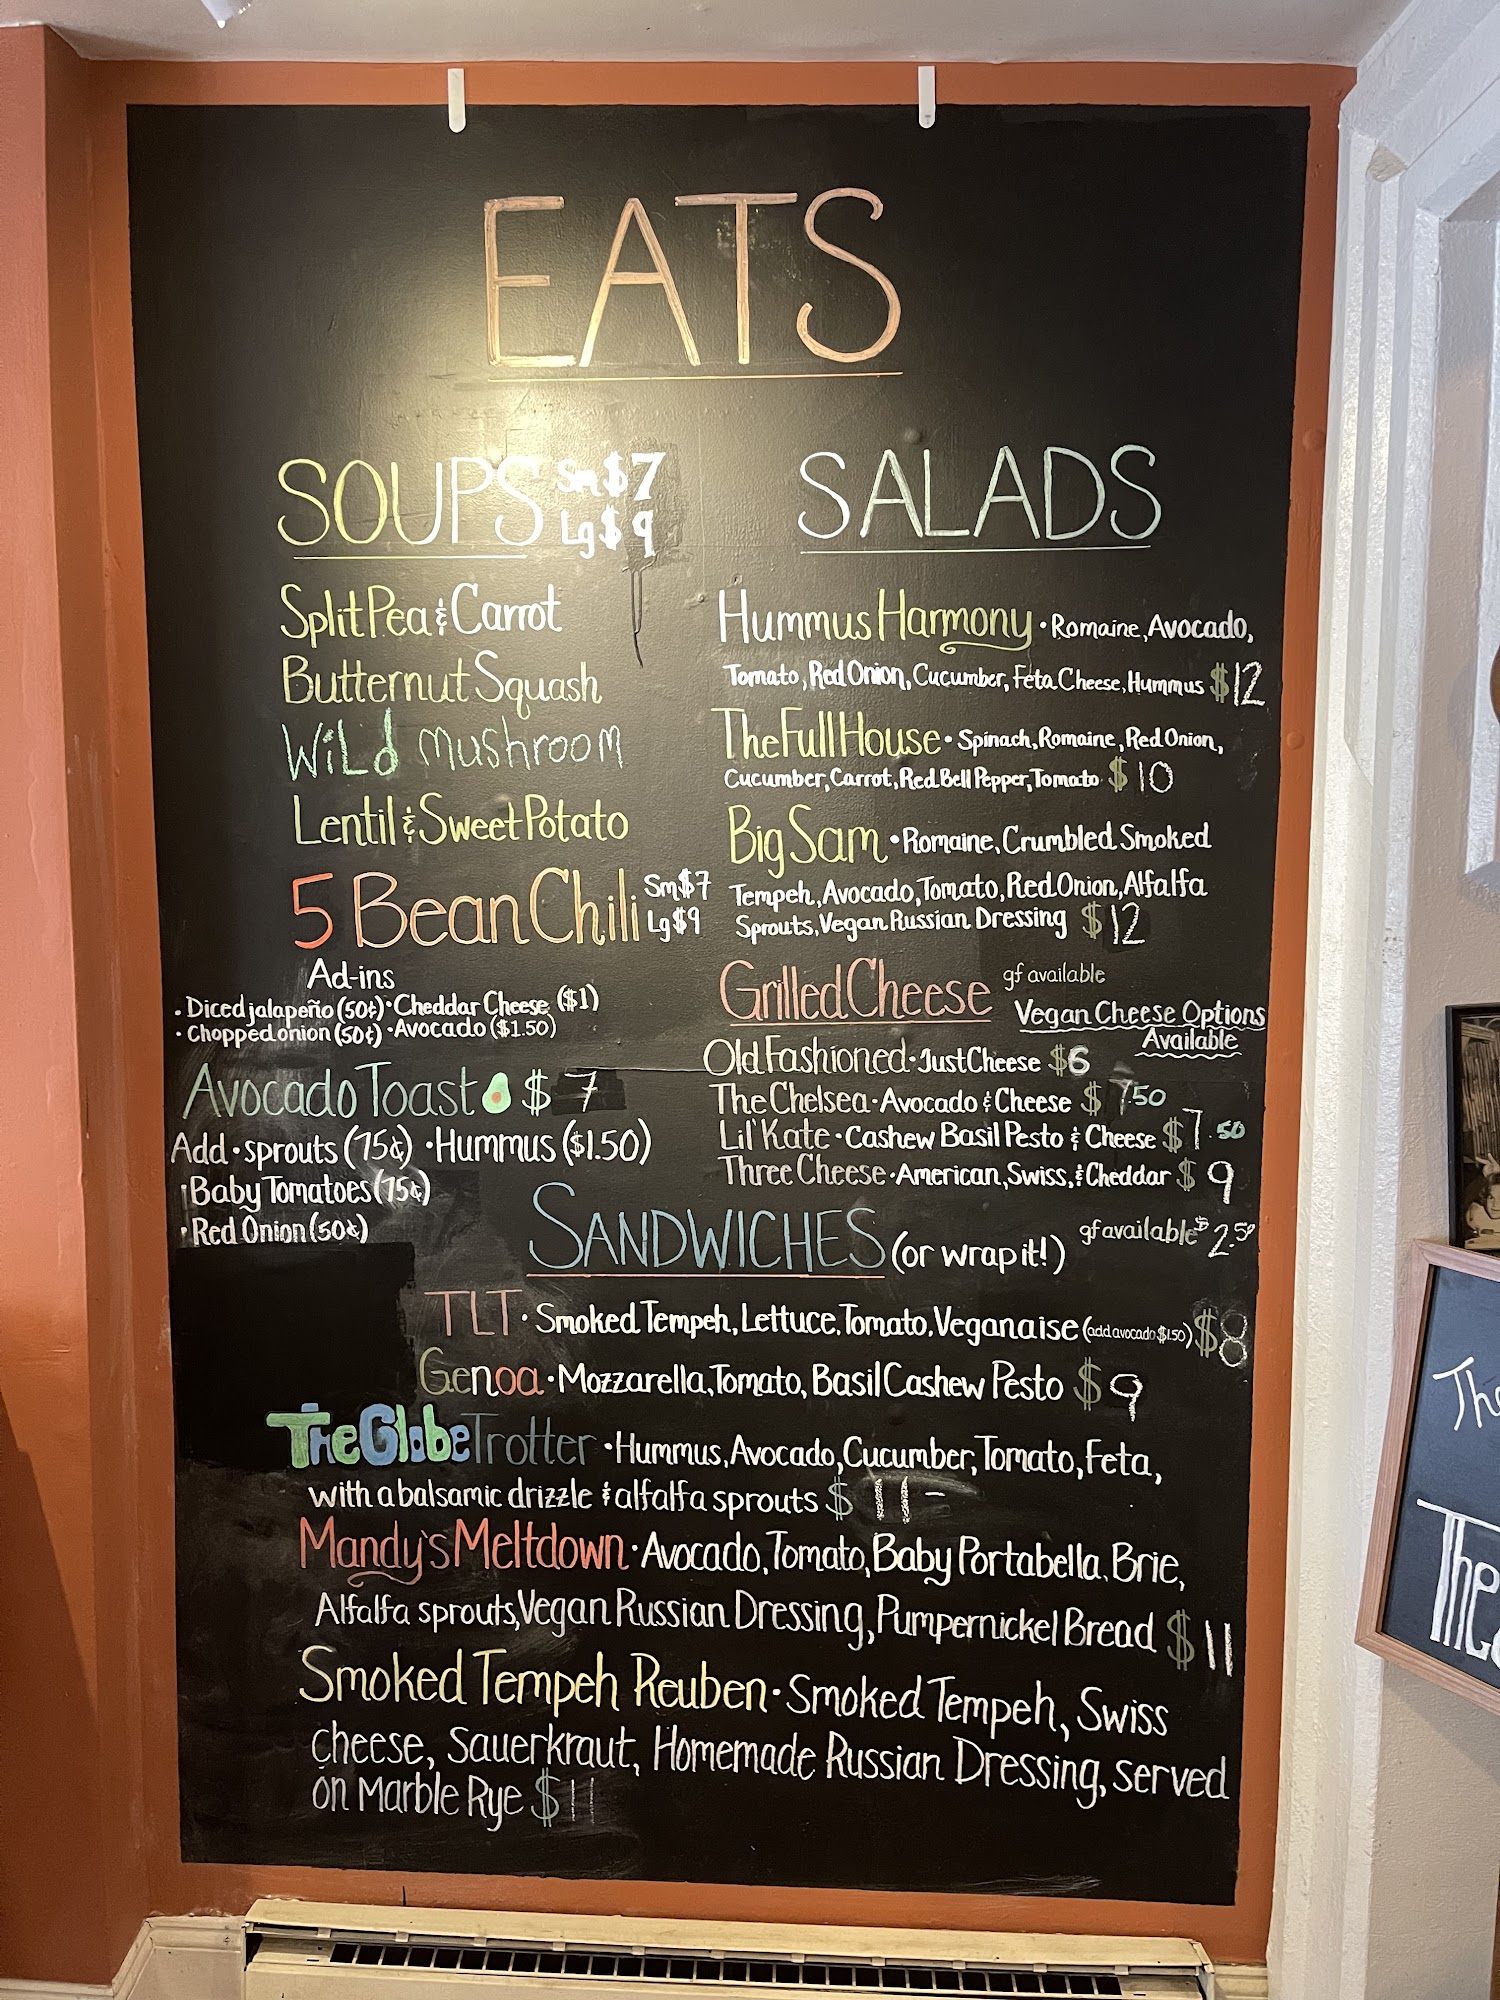 EATS
SOUPS Sm $7
Lg $9
Split Pea & Carrot
Butternut Squash
WiLd mushroom
Lentil & Sweet Potato
5 Bean Chili Sm $7
Lg $9
Ad-ins
• Diced jalapeño (50¢) • Cheddar Cheese ($1)
• Chopped onion (50¢) • Avocado ($1.50)
Avocado Toast $ 7
Add • sprouts (75¢) • Hummus ($1.50)
• Baby Tomatoes (75¢)
• Red Onion (50¢)
SALADS
Hummus Harmony • Romaine, Avocado,
Tomato, Red Onion, Cucumber, Feta Cheese, Hummus $12
The Full House • Spinach, Romaine, Red Onion,
Cucumber, Carrot, Red Bell Pepper, Tomato $10
Big Sam • Romaine, Crumbled Smoked
Tempeh, Avocado, Tomato, Red Onion, Alfalfa
Sprouts, Vegan Russian Dressing $12
Grilled Cheese gf available
Vegan Cheese Options
Available
Old Fashioned • Just Cheese $6
The Chelsea • Avocado & Cheese $ 7.50
Lil' Kate • Cashew Basil Pesto & Cheese $7.50
Three Cheese • American, Swiss, & Cheddar $ 9
SANDWICHES (or wrap it!) gf available $2.50
TLT • Smoked Tempeh, Lettuce, Tomato, Veganaise (add avocado $1.50) $8
Genoa • Mozzarella, Tomato, Basil Cashew Pesto $9
The Globe Trotter • Hummus, Avocado, Cucumber, Tomato, Feta,
with a balsamic drizzle & alfalfa sprouts $ 11-
Mandy's Meltdown • Avocado, Tomato, Baby Portabella, Brie,
Alfalfa sprouts, Vegan Russian Dressing, Pumpernickel Bread $11
Smoked Tempeh Reuben • Smoked Tempeh, Swiss
cheese, Sauerkraut, Homemade Russian Dressing, served
on Marble Rye $11
The